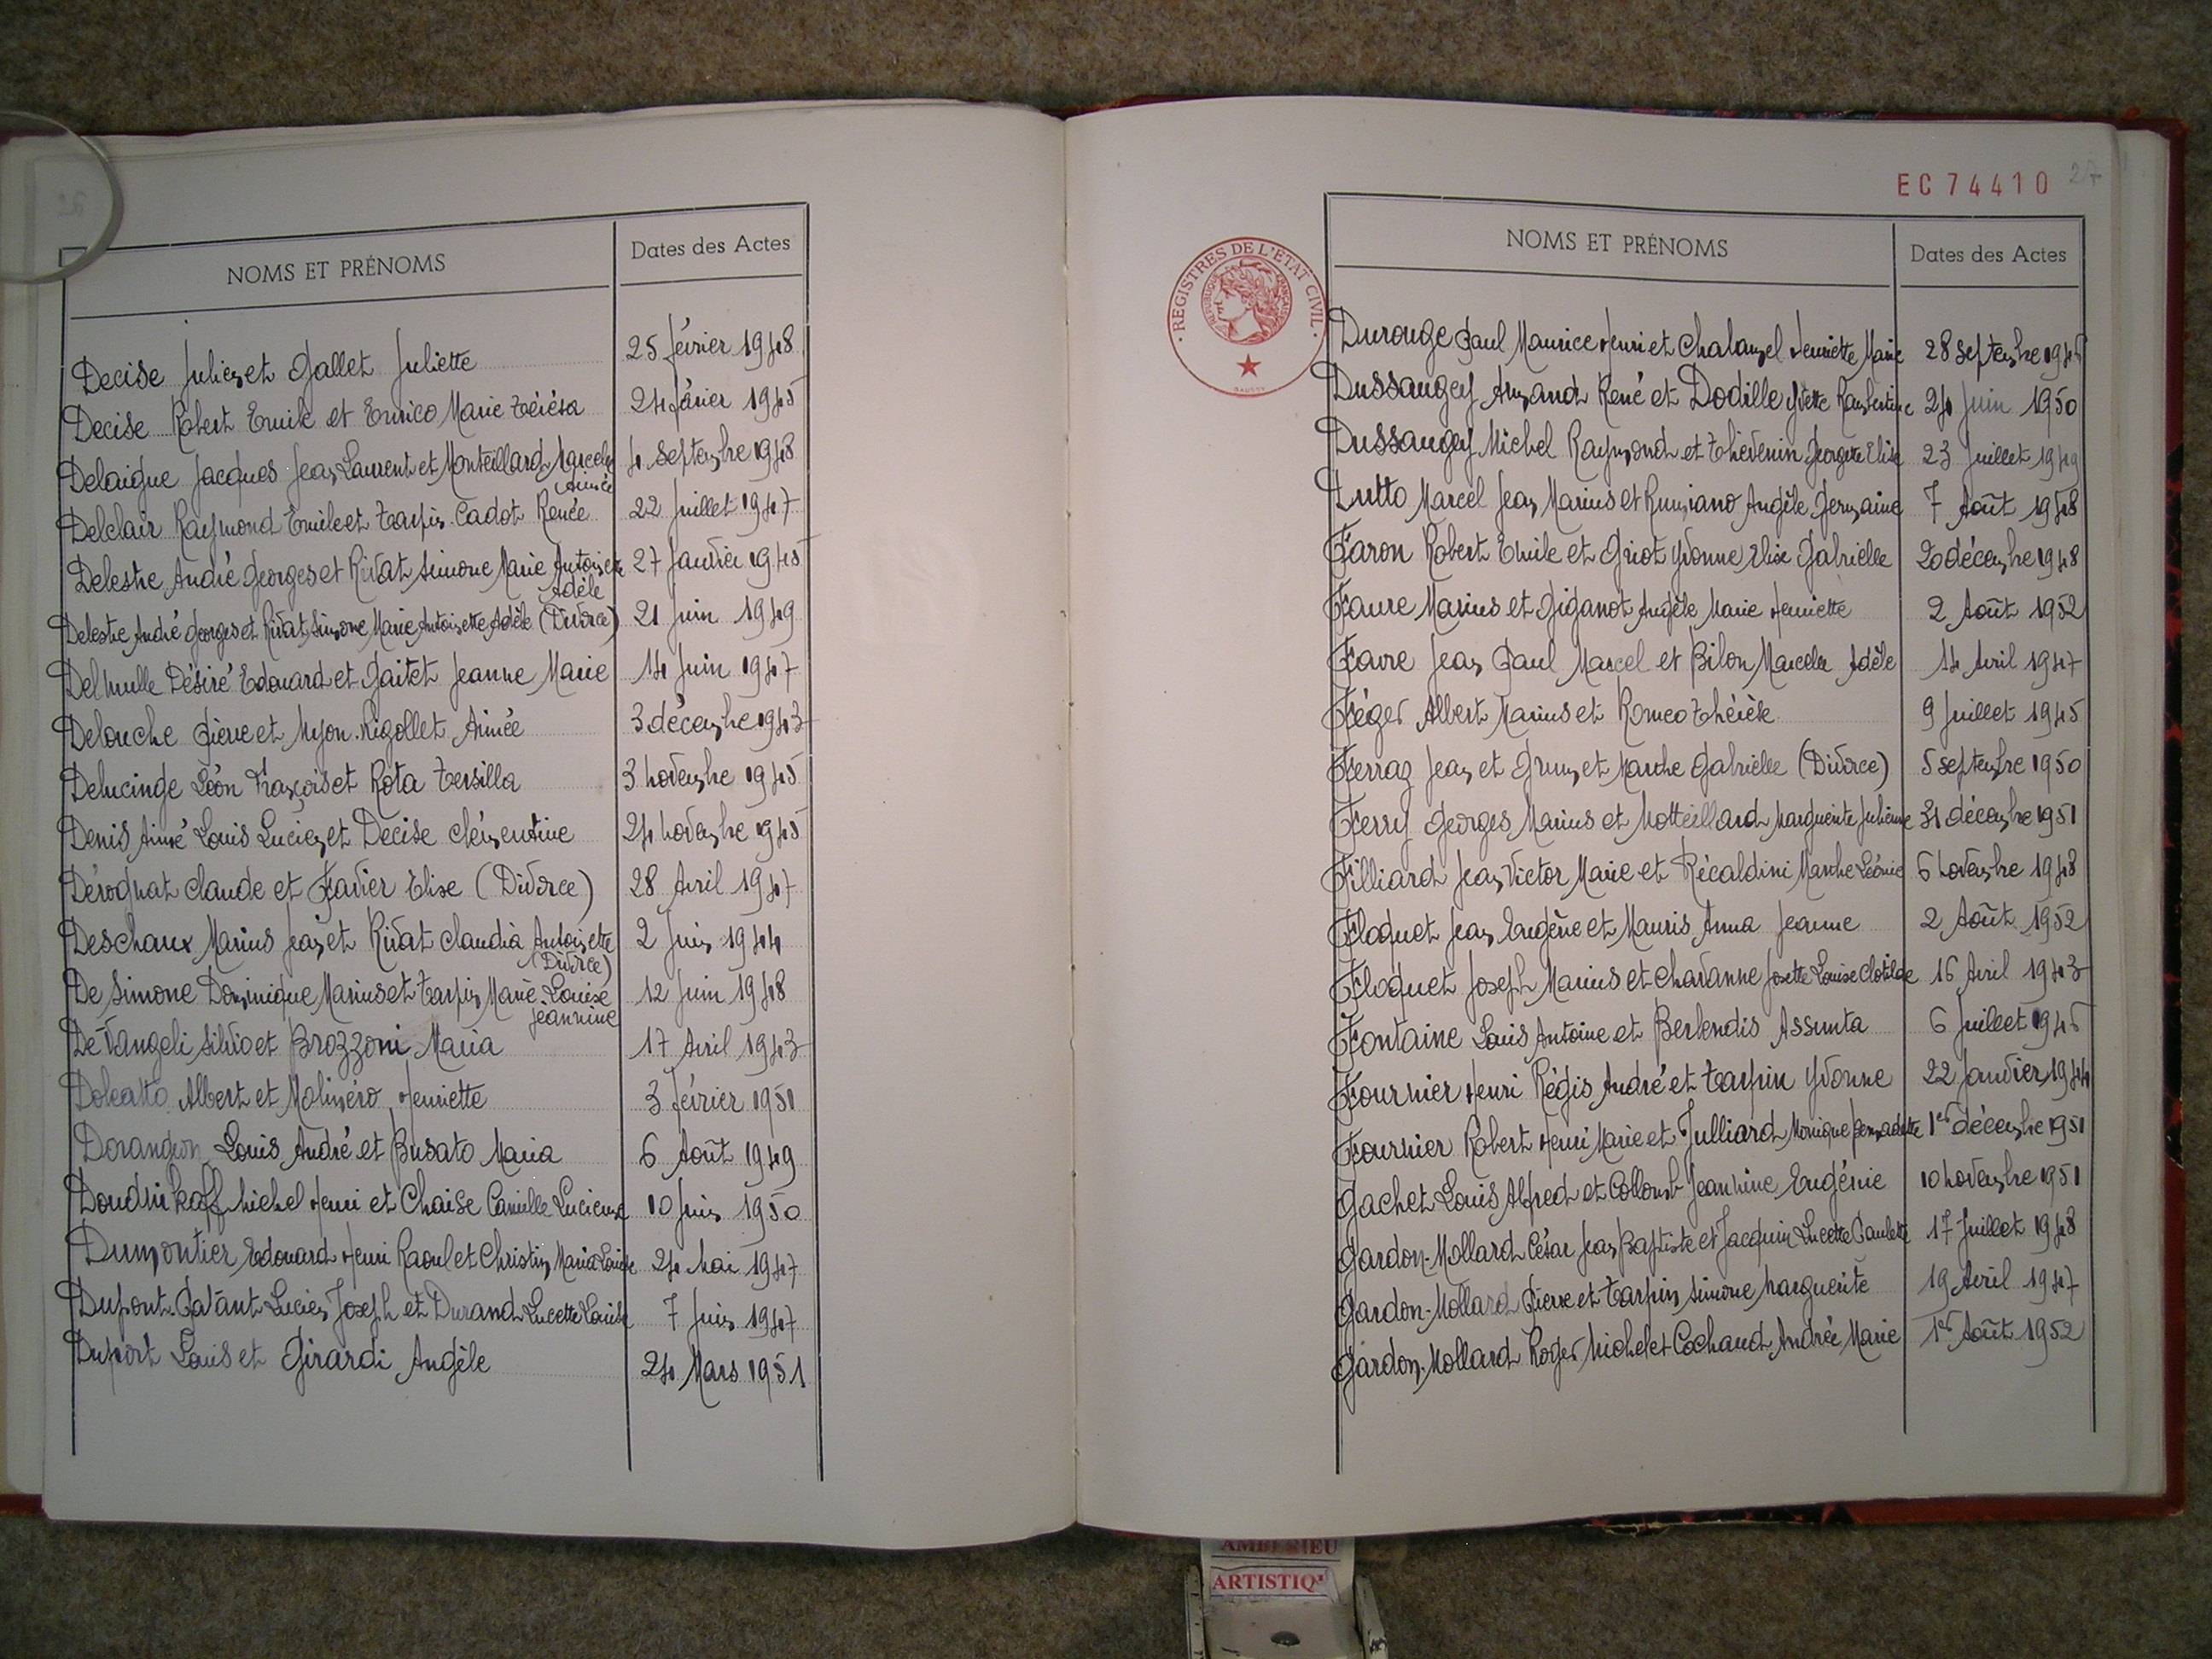 NOMS ET PRÉNOMS
Dates des Actes
Decise Julien et Gallet Juliette 25 février 1948
Decise Robert Emile et Enrico Marie Térésa 24 février 1945
Delaigue Jacques Jean Laurent et Monteillard Marcelle 4 septembre 1948
Aimée
Delclair Raymond Emile et Tarpin Cadot Renée 22 Juillet 1947
Delestre André Georges et Rivat Simone Marie Antoinette 27 Janvier 1945
Adèle
Delestre André Georges et Rivat Simone Marie Antoinette Adèle (Divorce) 21 Juin 1949
Delmulle Désiré Edouard et Gaitet Jeanne Marie 14 Juin 1947
Delouche Pierre et Myon-Rigollet Aimée 3 décembre 1943
Delucinge Léon François et Rota Tersilla 3 novembre 1945
Denis Aimé Louis Lucien et Decise Clémentine 24 novembre 1945
Dérognat Claude et Favier Elise (Divorce) 28 Avril 1947
Deschaux Marius Jean et Rivat Claudia Antoinette 2 Juin 1944
(Divorce)
De Simone Dominique Marius et Tarpin Marie-Louise 12 Juin 1948
Jeannine
De Vangeli Silvio et Brozzoni Maria 17 Avril 1943
Albert et Molinéro Henriette 3 février 1951
Dorangeon Louis André et Busato Maria 6 Août 1949
Doudnikoff Michel Henri et Chaise Camille Lucienne 10 Juin 1950
Dumontier Edouard Henri Raoul et Christin Maria Louise 24 Mai 1947
Dupont-Pavant Lucien Joseph et Durand Lucette Louise 7 Juin 1947
Duport Louis et Girardi Angèle 24 Mars 1951
EC 74410 27
REGISTRES DE L'ÉTAT CIVIL
RÉPUBLIQUE FRANÇAISE
NOMS ET PRÉNOMS
Dates des Actes
Durouge Paul Maurice Henri et Chalamel Henriette Marie 28 septembre
Dussaugey Armand René et Dodille Yvette Rambertine 24 Juin 1950
Dussaugey Michel Raymond et Thévenin Georgette Elise 23 Juillet 1949
Dutto Marcel Jean Marius et Rumiano Angèle Germaine 7 Août 1948
Faron Robert Emile et Griot Yvonne Elise Gabrielle 20 décembre 1948
Faure Marius et Giganot Angèle Marie Henriette 2 Août 1952
Favre Jean Paul Marcel et Bilon Marcelle Adèle 14 Avril 1947
Féger Albert Marius et Romeo Thérèse 9 Juillet 1945
Ferraz Jean et Grumet Marthe Gabrielle (Divorce) 5 septembre 1950
Ferry Georges Marius et Motteillard Marguerite Julienne 31 décembre 1951
Filliard Jean Victor Marie et Récaldini Marthe Léonie 6 novembre 1948
Floquet Jean Eugène et Mauris Anna Jeanne 2 Août 1952
Floquet Joseph Marius et Chavanne Josette Louise Clotilde 16 Avril 1943
Fontaine Louis Antoine et Berlendis Assunta 6 Juillet
Fournier Henri Régis André et Tarpin Yvonne 22 Janvier 1944
Fournier Robert Henri Marie et Julliard Monique Bernadette 1er décembre 1951
Gachet Louis Alfred et Collomb Jeannine Eugénie 10 novembre 1951
Gardon-Mollard César Jean Baptiste et Jacquin Lucette Paulette 17 Juillet 1948
Gardon-Mollard Pierre et Tarpin Simone Marguerite 19 Avril 1947
Gardon-Mollard Roger Michel et Cochaud Andrée Marie 1er Août 1952
AMBERIEU
ARTISTIQ